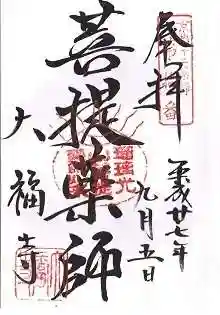 奉拝
平成廿七年
九月五日
菩提薬師
瑠璃光
大福寺